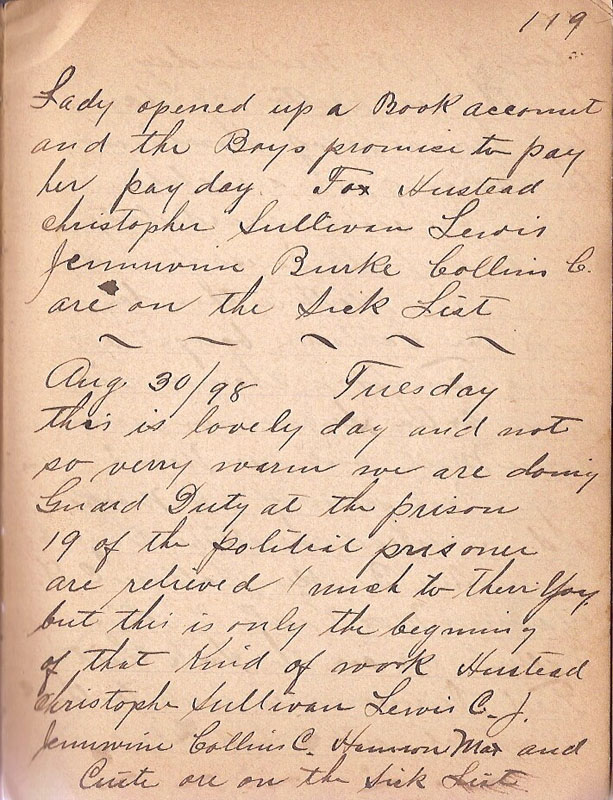 119
Lady opened up a Book account
and the Boys promise to pay
her pay day. Fox Hustead
Christopher Sullivan Lewis
Jennwine Burke Collins C.
are on the Sick List
Aug. 30/98 Tuesday
this is lovely day and not
so verry warm we are doing
Guard Duty at the prison
19 of the politial prisoner
are relieved much to their Yoy,
but this is only the begnning
of that Kind of work Hustead
Christophe Sullivan Lewis C. J.
Jennwine Collins C. Max and
are on the Sick List